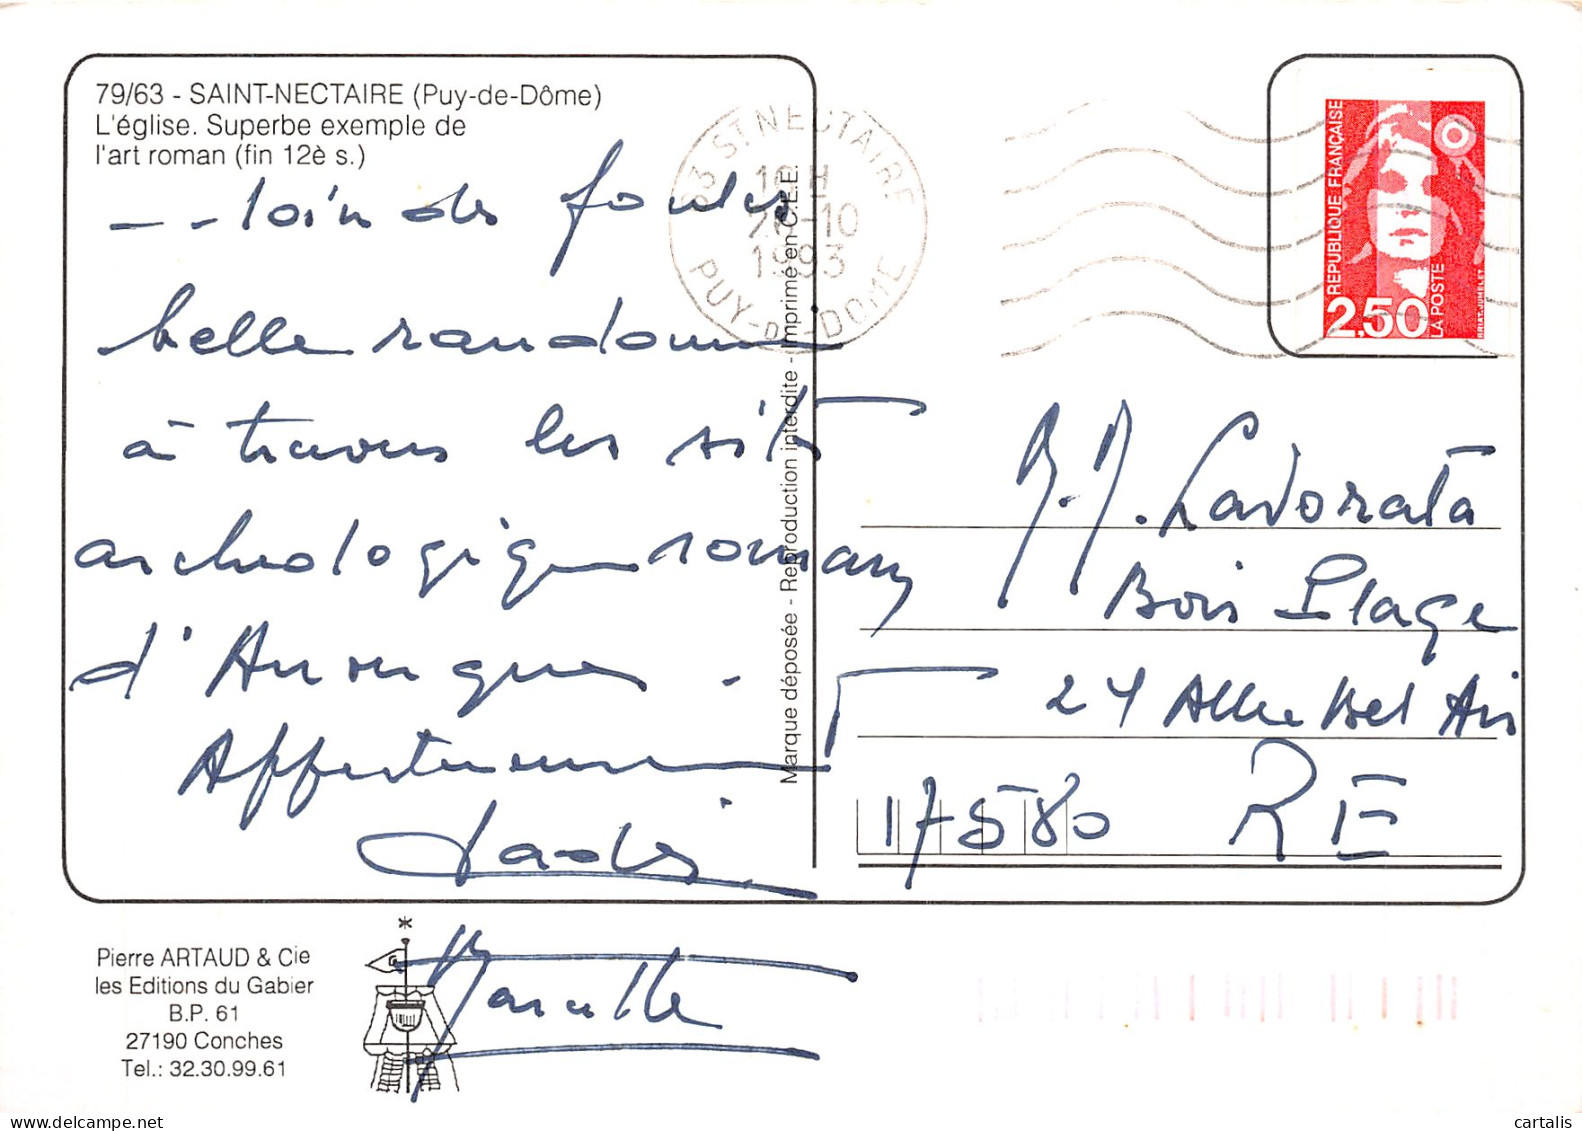 79/63 - SAINT-NECTAIRE (Puy-de-Dôme)
L'église. Superbe exemple de
l'art roman (fin 12è s.)
-- loin des foules
belle randonnée
à travers les sites
archéologiques romans
d'Auvergne.
Affectueusement
Marcelle
Marque déposée - Reproduction interdite - Imprimé en C.E.E.
63 ST. NECTAIRE
-10
1993
PUY-DE-DOME
REPUBLIQUE FRANÇAISE
2,50
LA POSTE
BRIAT-JUMELET
M.M. Lavorata
Bois Plage
24 Allée Bel Air
17580 RE
Pierre ARTAUD & Cie
les Editions du Gabier
B.P. 61
27190 Conches
Tel.: 32.30.99.61
cartalis
www.delcampe.net